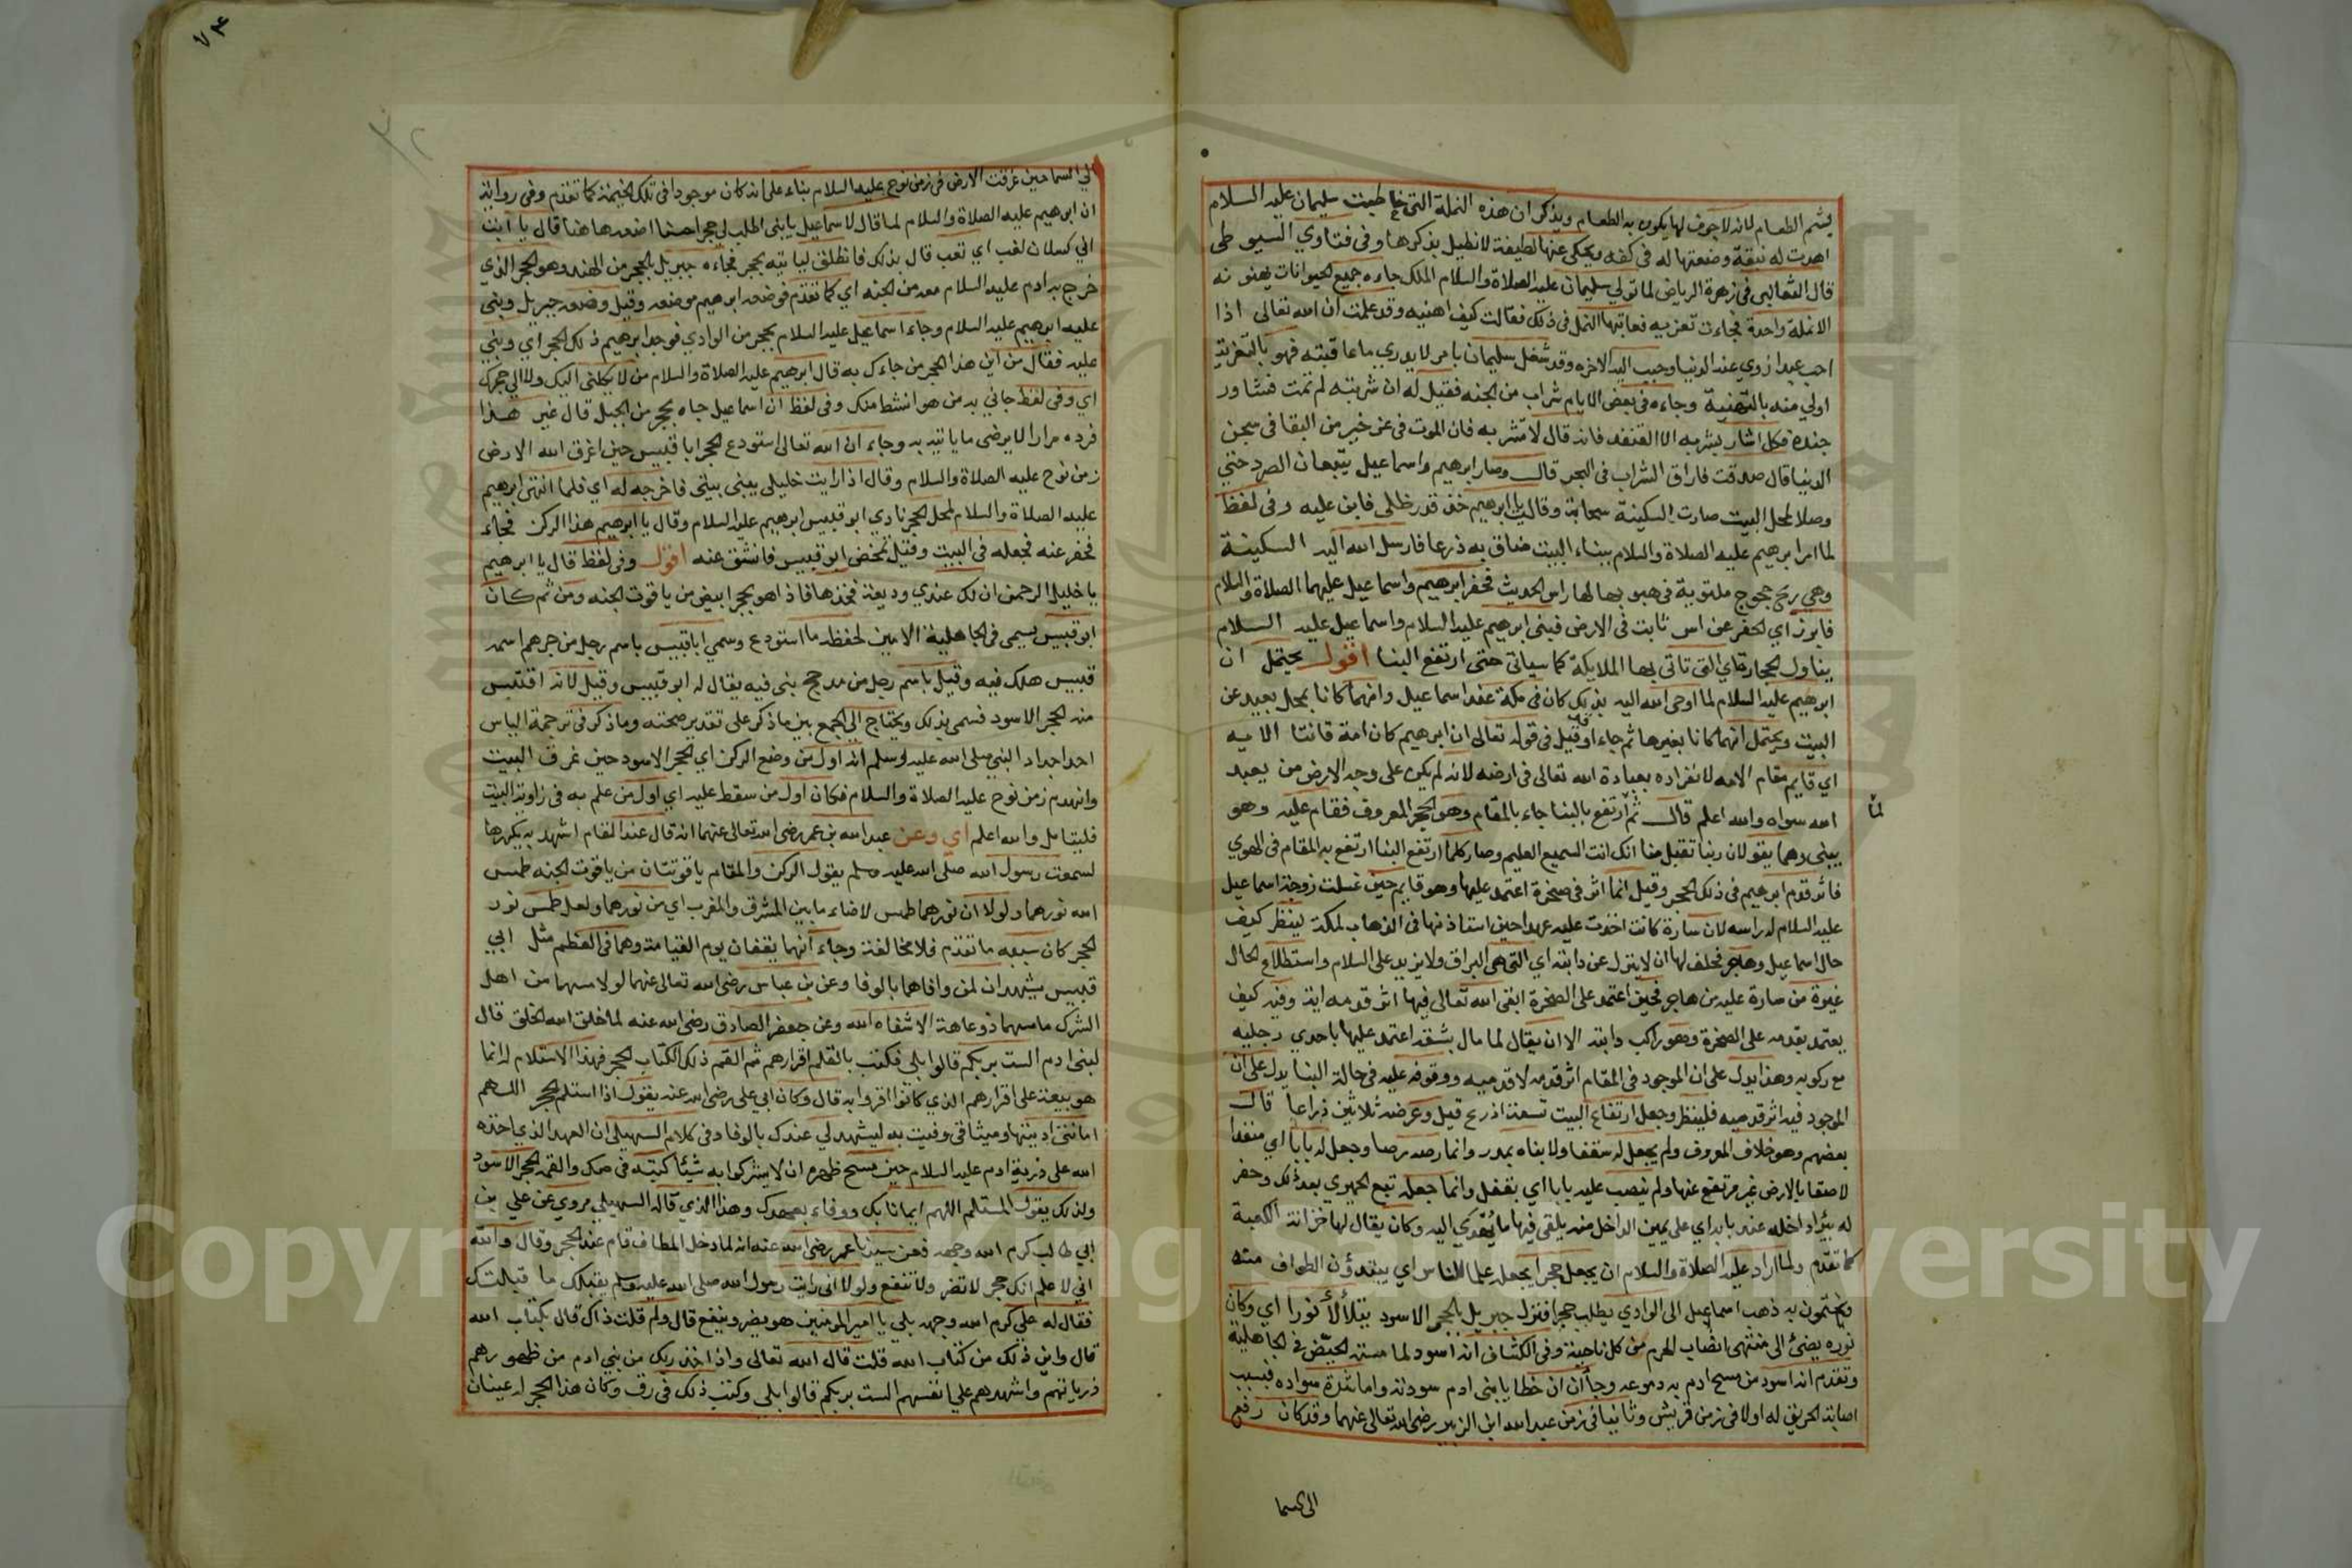 يشم الطعام لانه لاجوف لها يكون به الطعام ويذكر ان هذه النملة التي خاطبت سليمان عليه السلام
اهدت له نبقة وضعتها له في كفه ويحكى عنها لطيفة لا نطيل بذكرها وفي فتاوي السيوطي
قال الثعالبي في زهرة الرياض لما تولي سليمان عليه الصلاة والسلام الملك جاءه جميع الحيوانات يهنونه
الا نملة واحدة فجاءت تعزيه فعاتبها النمل في ذلك فقالت كيف اهنيه وقد علمت ان الله تعالى اذا
احب عبدا زوي عنه الدنيا وحبب اليه الاخره وقد شغل سليمان بامر لا يدري ما عاقبته فهو بالتعزية
اولي منه بالتهنية وجاءه في بعض الايام شراب من الجنه فقيل له ان شربته لم تمت فشاور
جنده فكل اشار بشربه الا القنفد فانه قال لا تشربه فان الموت في عز خير من البقا في سجن
الدنيا قال صدقت فاراق الشراب في البحر قال وصار ابرهيم واسماعيل يتبعان الصرد حتي
وصلا لمحل البيت صارت السكينة سحابة وقالت يا ابرهيم خذ قدر ظلي فابن عليه وفي لفظ
لما امر ابرهيم عليه الصلاة والسلام ببناء البيت ضاق به ذرعا فارسل الله اليه السكينة
وهي ريح خجوج ملتوية في هبوبها لها راس الحديث فحفر ابرهيم واسماعيل عليهما الصلاة والسلام
فابرز اي الحفر عن اس ثابت في الارض فبنى ابرهيم عليه السلام واسماعيل عليه السلام
يناول الحجارة اي التي تاتي بها الملايكة كما سياتي حتى ارتفع البنا اقول يحتمل ان
ابرهيم عليه السلام لما اوحى الله اليه بذلك كان في مكة عند اسماعيل وانهما كانا بمحل بعيد عن
البيت ويحتمل انهما كانا بغيرها ثم جاءا وقيل في قوله تعالى ان ابرهيم كان امة قانتا الايه
اي قايم مقام الامه لانفراده بعبادة الله تعالى في ارضه لانه لم يكن على وجه الارض من يعبد
الله سواه والله اعلم قال ثم ارتفع بالبنا جاء بالمقام وهو الحجر المعروف فقام عليه وهو
لما
يبني وهما يقولان ربنا تقبل منا انك انت السميع العليم وصار كلما ارتفع البنا ارتفع به المقام في الهوي
فاثر قدم ابرهيم في ذلك الحجر وقيل انما اثر في صخرة اعتمد عليها وهو قايم حين غسلت زوجة اسماعيل
عليه السلام له راسه لان سارة كانت اخذت عليه عهدا حين استاذنها في الذهاب لمكة لينظر كيف
حال اسماعيل وهاجر فحلف لها ان لا ينزل عن دابته اي التي هي البراق ولا يزيد على السلام واستطلاع الحال
غيرة من سارة عليه من هاجر فحين اعتمد على الصخرة ابقى الله تعالى فيها اثر قدمه اية وفيه كيف
يعتمد بقدمه على الصخرة وهو راكب دابته الا ان يقال لما مال بشقه اعتمد عليها باحدي رجليه
مع ركوبه وهذا يدل على ان الموجود في المقام اثر قدمه لا قدميه ووقوفه عليه في حالة البنا يدل على ان
الموجود فيه اثر قدميه فلينظر وجعل ارتفاع البيت تسعة اذرع قيل وعرضه ثلاثين ذراعا قال
بعضهم وهو خلاف المعروف ولم يجعل له سقفا ولا بناه بمدر وانما رصه رصا وجعل له بابا اي منفذا
لاصقا بالارض غير مرتفع عنها ولم ينصب عليه بابا اي يقفل وانما جعله تبع الحميري بعد ذلك وحفر
له بئرا داخله عند بابه اي على يمين الداخل منه يلقى فيها ما يهدى اليه وكان يقال لها خزانة الكعبة
كما تقدم ولما اراد عليه الصلاة والسلام ان يجعل حجرا يجعله علما للناس اي يبتدؤن الطواف منه
ويختمون به ذهب اسماعيل الى الوادي يطلب حجرا فنزل جبريل بالحجر الاسود يتلألأ نورا اي وكان
نوره يضئ الى منتهى انصاب الحرم من كل ناحية وفي الكشاف انه اسود لما مسته الحيض في الجاهلية
وتقدم انه اسود من مسح ادم به دموعه وجاء ان خطايا بني ادم سودته واما شدة سواده فبسبب
اصابة الحريق له اولا في زمن قريش وثانيا في زمن عبد الله ابن الزبير رضي الله تعالى عنهما وقد كان رفع
الى السما
٧٤
الي السما حين غرقت الارض في زمن نوح عليه السلام بناء على انه كان موجودا في تلك الخيمة كما تقدم وفي رواية
ان ابرهيم عليه الصلاة والسلام لما قال لاسماعيل يا بني اطلب لي حجرا حسنا اضعه هاهنا قال يا ابت
اني كسلان لغب اي تعب قال بذلك فانطلق لياتيه بحجر فجاءه جبريل بالحجر من الهند وهو الحجر الذي
خرج به ادم عليه السلام معه من الجنه اي كما تقدم فوضعه ابرهيم موضعه وقيل وضعه جبريل وبنى
عليه ابرهيم عليه السلام وجاء اسماعيل عليه السلام بحجر من الوادي فوجد ابرهيم ذلك الحجر اي وبني
عليه فقال من اين هذا الحجر من جاءك به قال ابرهيم عليه الصلاة والسلام من لا يكلني اليك ولا الي حجرك
اي وفي لفظ جاني به من هو انشط منك وفي لفظ ان اسماعيل جاه بحجر من الجبل قال غير هذا
فرده مرارا لا يرضى ما ياتيه به وجاء ان الله تعالى استودع الحجر ابا قبيس حين اغرق الله الارض
زمن نوح عليه الصلاة والسلام وقال اذا رايت خليلي يبني بيتي فاخرجه له اي فلما انتهى ابرهيم
عليه الصلاة والسلام لمحل الحجر نادي ابو قبيس ابرهيم عليه السلام وقال يا ابرهيم هذا الركن فجاء
فحفر عنه فجعله في البيت وقيل تمخض ابو قبيس فانشق عنه اقول وفي لفظ قال يا ابرهيم
يا خليل الرحمن ان لك عندي وديعة فخذها فاذا هو بحجر ابيض من ياقوت الجنه ومن ثم كان
ابو قبيس يسمى في الجاهلية الامين لحفظه ما استودع وسمي ابا قبيس باسم رجل من جرهم اسمه
قبيس هلك فيه وقيل باسم رجل من مذحج بنى فيه يقال له ابو قبيس وقيل لانه اقتبس
منه الحجر الاسود فسمي بذلك ويحتاج الي الجمع بين ما ذكر على تقدير صحته وما ذكر في ترجمة الياس
احد اجداد النبي صلى الله عليه وسلم انه اول من وضع الركن اي الحجر الاسود حين غرق البيت
وانهدم زمن نوح عليه الصلاة والسلام فكان اول من سقط عليه اي اول من علم به في زاوية البيت
فليتامل والله اعلم اي وعن عبد الله بن عمر رضي الله تعالى عنهما انه قال عند المقام اشهد به يكررها
لسمعت رسول الله صلى الله عليه وسلم يقول الركن والمقام ياقوتتان من ياقوت الجنه طمس
الله نورهما ولولا ان نورهما طمس لاضاء ما بين المشرق والمغرب اي من نورهما ولعل طمس نور
الحجر كان سببه ما تقدم فلا مخالفة وجاء انهما يقفان يوم القيامة وهما في العظم مثل ابي
قبيس يشهدان لمن وافاهما بالوفا وعن بن عباس رضي الله تعالى عنهما لولا مسهما من اهل
الشرك ما مسهما ذو عاهة الا شفاه الله وعن جعفر الصادق رضي الله عنه لما خلق الله الخلق قال
لبنى ادم الست بربكم قالوا بلى فكتب بالقلم اقرارهم ثم القم ذلك الكتاب الحجر فهذا الاستلام له انما
هو بيعة على اقرارهم الذي كانوا اقروا به قال وكان ابي علي رضي الله عنه يقول اذا استلم الحجر اللهم
امانتي اديتها وميثاقي وفيت به ليشهد لي عندك بالوفا وفي كلام السهيلي ان العهد الذي اخذه
الله على ذرية ادم عليه السلام حين مسح ظهره ان لا يشركوا به شيئا كتبه في صك والقمه الحجر الاسود
ولذلك يقول المستلم اللهم ايمانا بك ووفاء بعهدك وهذا الذي قاله السهيلي مروي عن علي بن
ابي طالب كرم الله وجهه فعن سيدنا عمر رضي الله عنه انه لما دخل المطاف قام عند الحجر وقال والله
اني لاعلم انك حجر لا تضر ولا تنفع ولولا اني رايت رسول الله صلى الله عليه وسلم يقبلك ما قبلتك
فقال له علي كرم الله وجهه بلي يا امير المومنين هو يضر وينفع قال ولم قلت ذاك قال بكتاب الله
قال واين ذلك من كتاب الله قلت قال الله تعالى واذ اخذ ربك من بني ادم من ظهورهم
ذرياتهم واشهدهم علي انفسهم الست بربكم قالوا بلى وكتب ذلك في رق وكان هذا الحجر له عينان
Copyright © King Saud University